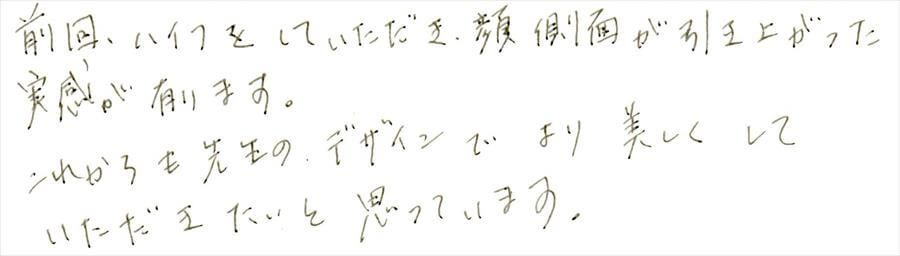 前回、ハイフをしていただき、顔側面が引き上がった
実感が有ります。
これからも先生のデザインでより美しくして
いただきたいと思っています。